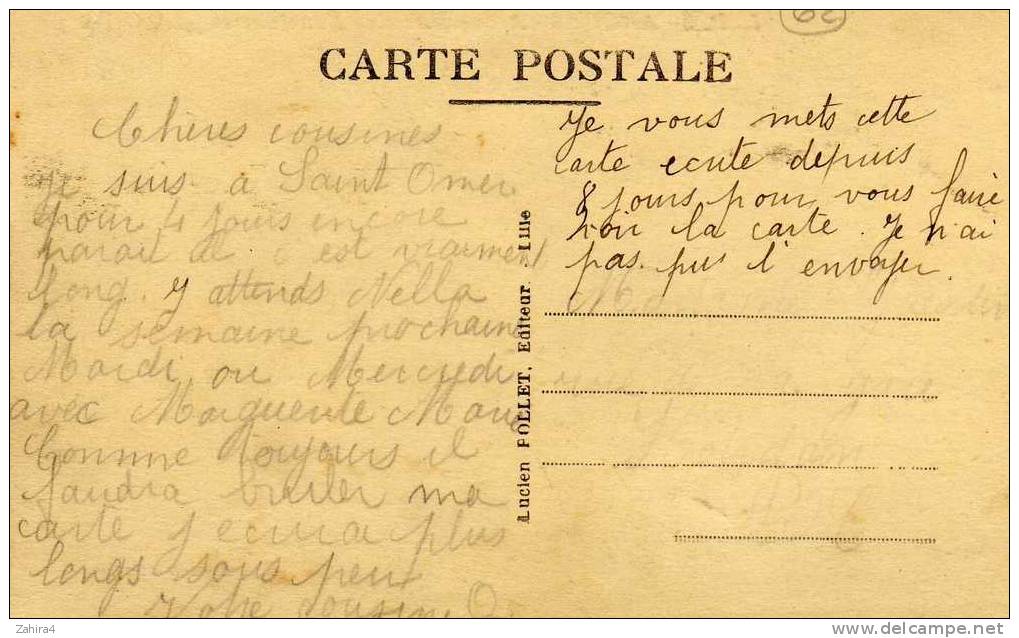 62
CARTE POSTALE
Chères cousines
Je suis à Saint Omer
pour 4 jours encore
parait il c est vraiment
long. J attends Nella
la semaine prochaine
Mardi ou Mercredi
avec Marguerite Marie
Comme toujours il
faudra bruler ma
carte j ecrirai plus
longs sous peu
Votre cousin
Lucien POLLET, Editeur. Lille
Je vous mets cette
carte ecrite depuis
8 jours pour vous faire
voir la carte. Je n'ai
pas pus l'envoyer.
Zahira4